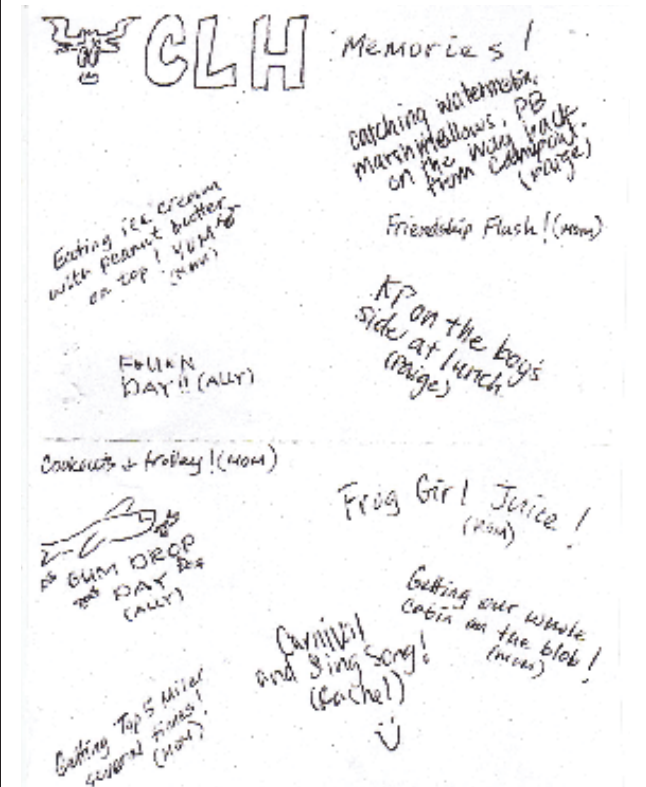 CLH Memories!
catching watermelon,
marshmallows, PB
on the way back
from Campout.
(Paige)
Eating ice cream
with peanut butter
on top! YUM
(MOM)
Friendship Flash! (MOM)
KP on the boy's
side at lunch
(Paige)
DAY!! (ALLY)
Cookouts + trolley! (MOM)
Frog Girl Juice!
(MOM)
GUM DROP
DAY
(ALLY)
Getting our whole
cabin on the blob!
(MOM)
Carnival
and Sing Song!
(Rachel)
Getting Top 5 Miler
several times!
(MOM)